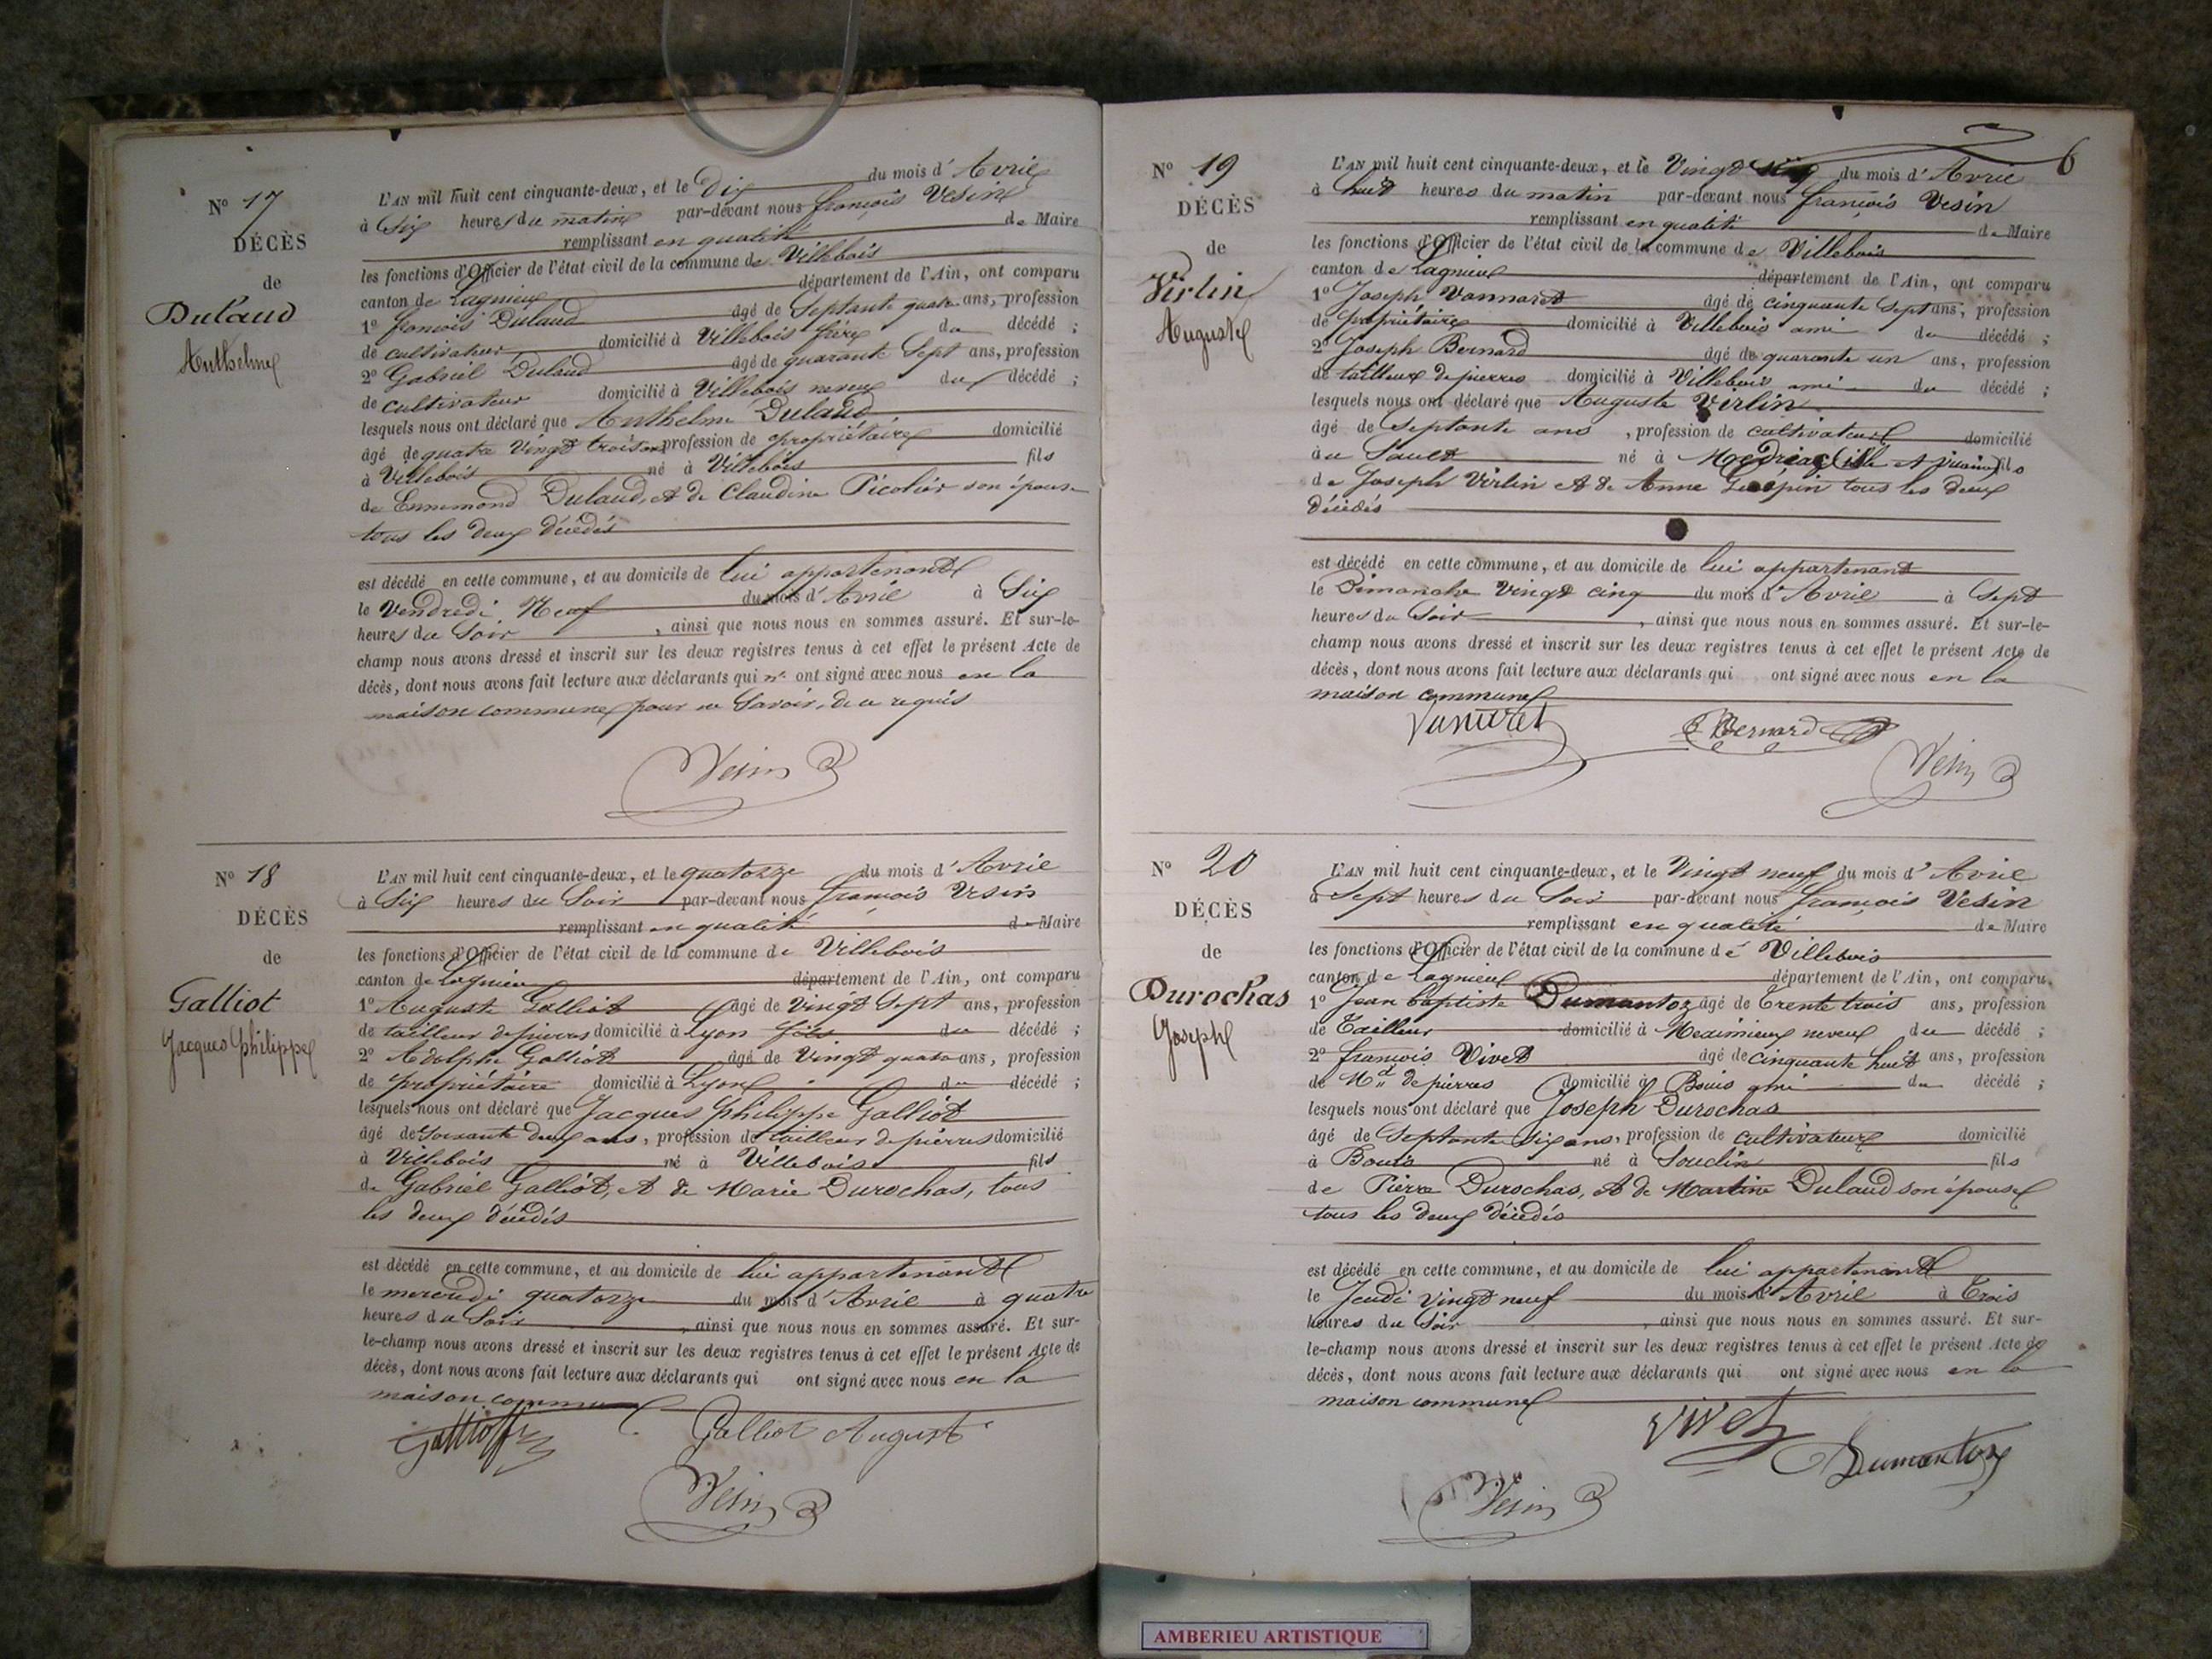 N° 17
DÉCÈS
de
Dulaud
Anthelme
L'AN mil huit cent cinquante-deux, et le Dix du mois d'Avril
à Six heures du matin par-devant nous françois Vesin
remplissant en qualité de Maire
les fonctions d'Officier de l'état civil de la commune de Villebois
canton de Lagnieu département de l'Ain, ont comparu
1° françois Dulaud âgé de Septante quatre ans, profession
de cultivateur domicilié à Villebois frère du décédé ;
2° Gabriel Dulaud âgé de quarante Sept ans, profession
de cultivateur domicilié à Villebois neveu du décédé ;
lesquels nous ont déclaré que Anthelme Dulaud
âgé de quatre Vingt trois ans, profession de propriétaire domicilié
à Villebois né à Villebois fils
de Ennemond Dulaud, et de Claudine Picolier son épouse
tous les deux décédés
est décédé en cette commune, et au domicile de lui appartenant
le Vendredi Neuf du mois d'Avril à Six
heures du Soir, ainsi que nous nous en sommes assuré. Et sur-le-
champ nous avons dressé et inscrit sur les deux registres tenus à cet effet le présent Acte de
décès, dont nous avons fait lecture aux déclarants qui n' ont signé avec nous en la
maison commune pour ne Savoir, de ce requis
Vesin
N° 18
DÉCÈS
de
Galliot
Jacques Philippe
L'AN mil huit cent cinquante-deux, et le quatorze du mois d'Avril
à Six heures du Soir par-devant nous françois Vesin
remplissant en qualité de Maire
les fonctions d'Officier de l'état civil de la commune de Villebois
canton de Lagnieu département de l'Ain, ont comparu
1° Auguste Galliot âgé de Vingt Sept ans, profession
de tailleur de pierres domicilié à Lyon fils du décédé ;
2° Adolphe Galliot âgé de Vingt quatre ans, profession
de propriétaire domicilié à Lyon du décédé ;
lesquels nous ont déclaré que Jacques Philippe Galliot
âgé de Soixante deux ans, profession de tailleur de pierres domicilié
à Villebois né à Villebois fils
de Gabriel Galliot, et de Marie Durochas, tous
les deux décédés
est décédé en cette commune, et au domicile de lui appartenant
le mercredi quatorze du mois d'Avril à quatre
heures du Soir, ainsi que nous nous en sommes assuré. Et sur-
le-champ nous avons dressé et inscrit sur les deux registres tenus à cet effet le présent Acte de
décès, dont nous avons fait lecture aux déclarants qui ont signé avec nous en la
maison commune
Galliot Auguste
Vesin
6
N° 19
DÉCÈS
de
Virlin
Auguste
L'AN mil huit cent cinquante-deux, et le Vingt six du mois d'Avril
à huit heures du matin par-devant nous françois Vesin
remplissant en qualité de Maire
les fonctions d'Officier de l'état civil de la commune de Villebois
canton de Lagnieu département de l'Ain, ont comparu
1° Joseph Vannaret âgé de cinquante Sept ans, profession
de propriétaire domicilié à Villebois ami du décédé ;
2° Joseph Bernard âgé de quarante un ans, profession
de tailleur de pierres domicilié à Villebois ami du décédé ;
lesquels nous ont déclaré que Auguste Virlin
âgé de Septante ans, profession de cultivateur domicilié
au Sault né à fils
de Joseph Virlin et de Anne tous les deux
décédés
est décédé en cette commune, et au domicile de lui appartenant
le Dimanche Vingt cinq du mois d'Avril à Sept
heures du Soir, ainsi que nous nous en sommes assuré. Et sur-le-
champ nous avons dressé et inscrit sur les deux registres tenus à cet effet le présent Acte de
décès, dont nous avons fait lecture aux déclarants qui ont signé avec nous en la
maison commune
Vannaret Bernard
Vesin
N° 20
DÉCÈS
de
Durochas
Joseph
L'AN mil huit cent cinquante-deux, et le Vingt neuf du mois d'Avril
à Sept heures du Soir par-devant nous françois Vesin
remplissant en qualité de Maire
les fonctions d'Officier de l'état civil de la commune de Villebois
canton de Lagnieu département de l'Ain, ont comparu
1° Jean Baptiste Dumantoz âgé de Trente trois ans, profession
de Tailleur domicilié à Meximieux neveu du décédé ;
2° françois Vivet âgé de cinquante huit ans, profession
de Md de pierres domicilié à Bouis ami du décédé ;
lesquels nous ont déclaré que Joseph Durochas
âgé de Septante Six ans, profession de cultivateur domicilié
à Bouis né à Souclin fils
de Pierre Durochas, et de Martine Dulaud son épouse
tous les deux décédés
est décédé en cette commune, et au domicile de lui appartenant
le Jeudi Vingt neuf du mois d'Avril à Trois
heures du Soir, ainsi que nous nous en sommes assuré. Et sur-
le-champ nous avons dressé et inscrit sur les deux registres tenus à cet effet le présent Acte de
décès, dont nous avons fait lecture aux déclarants qui ont signé avec nous en la
maison commune
Vivet
Dumantoz
Vesin
AMBERIEU ARTISTIQUE